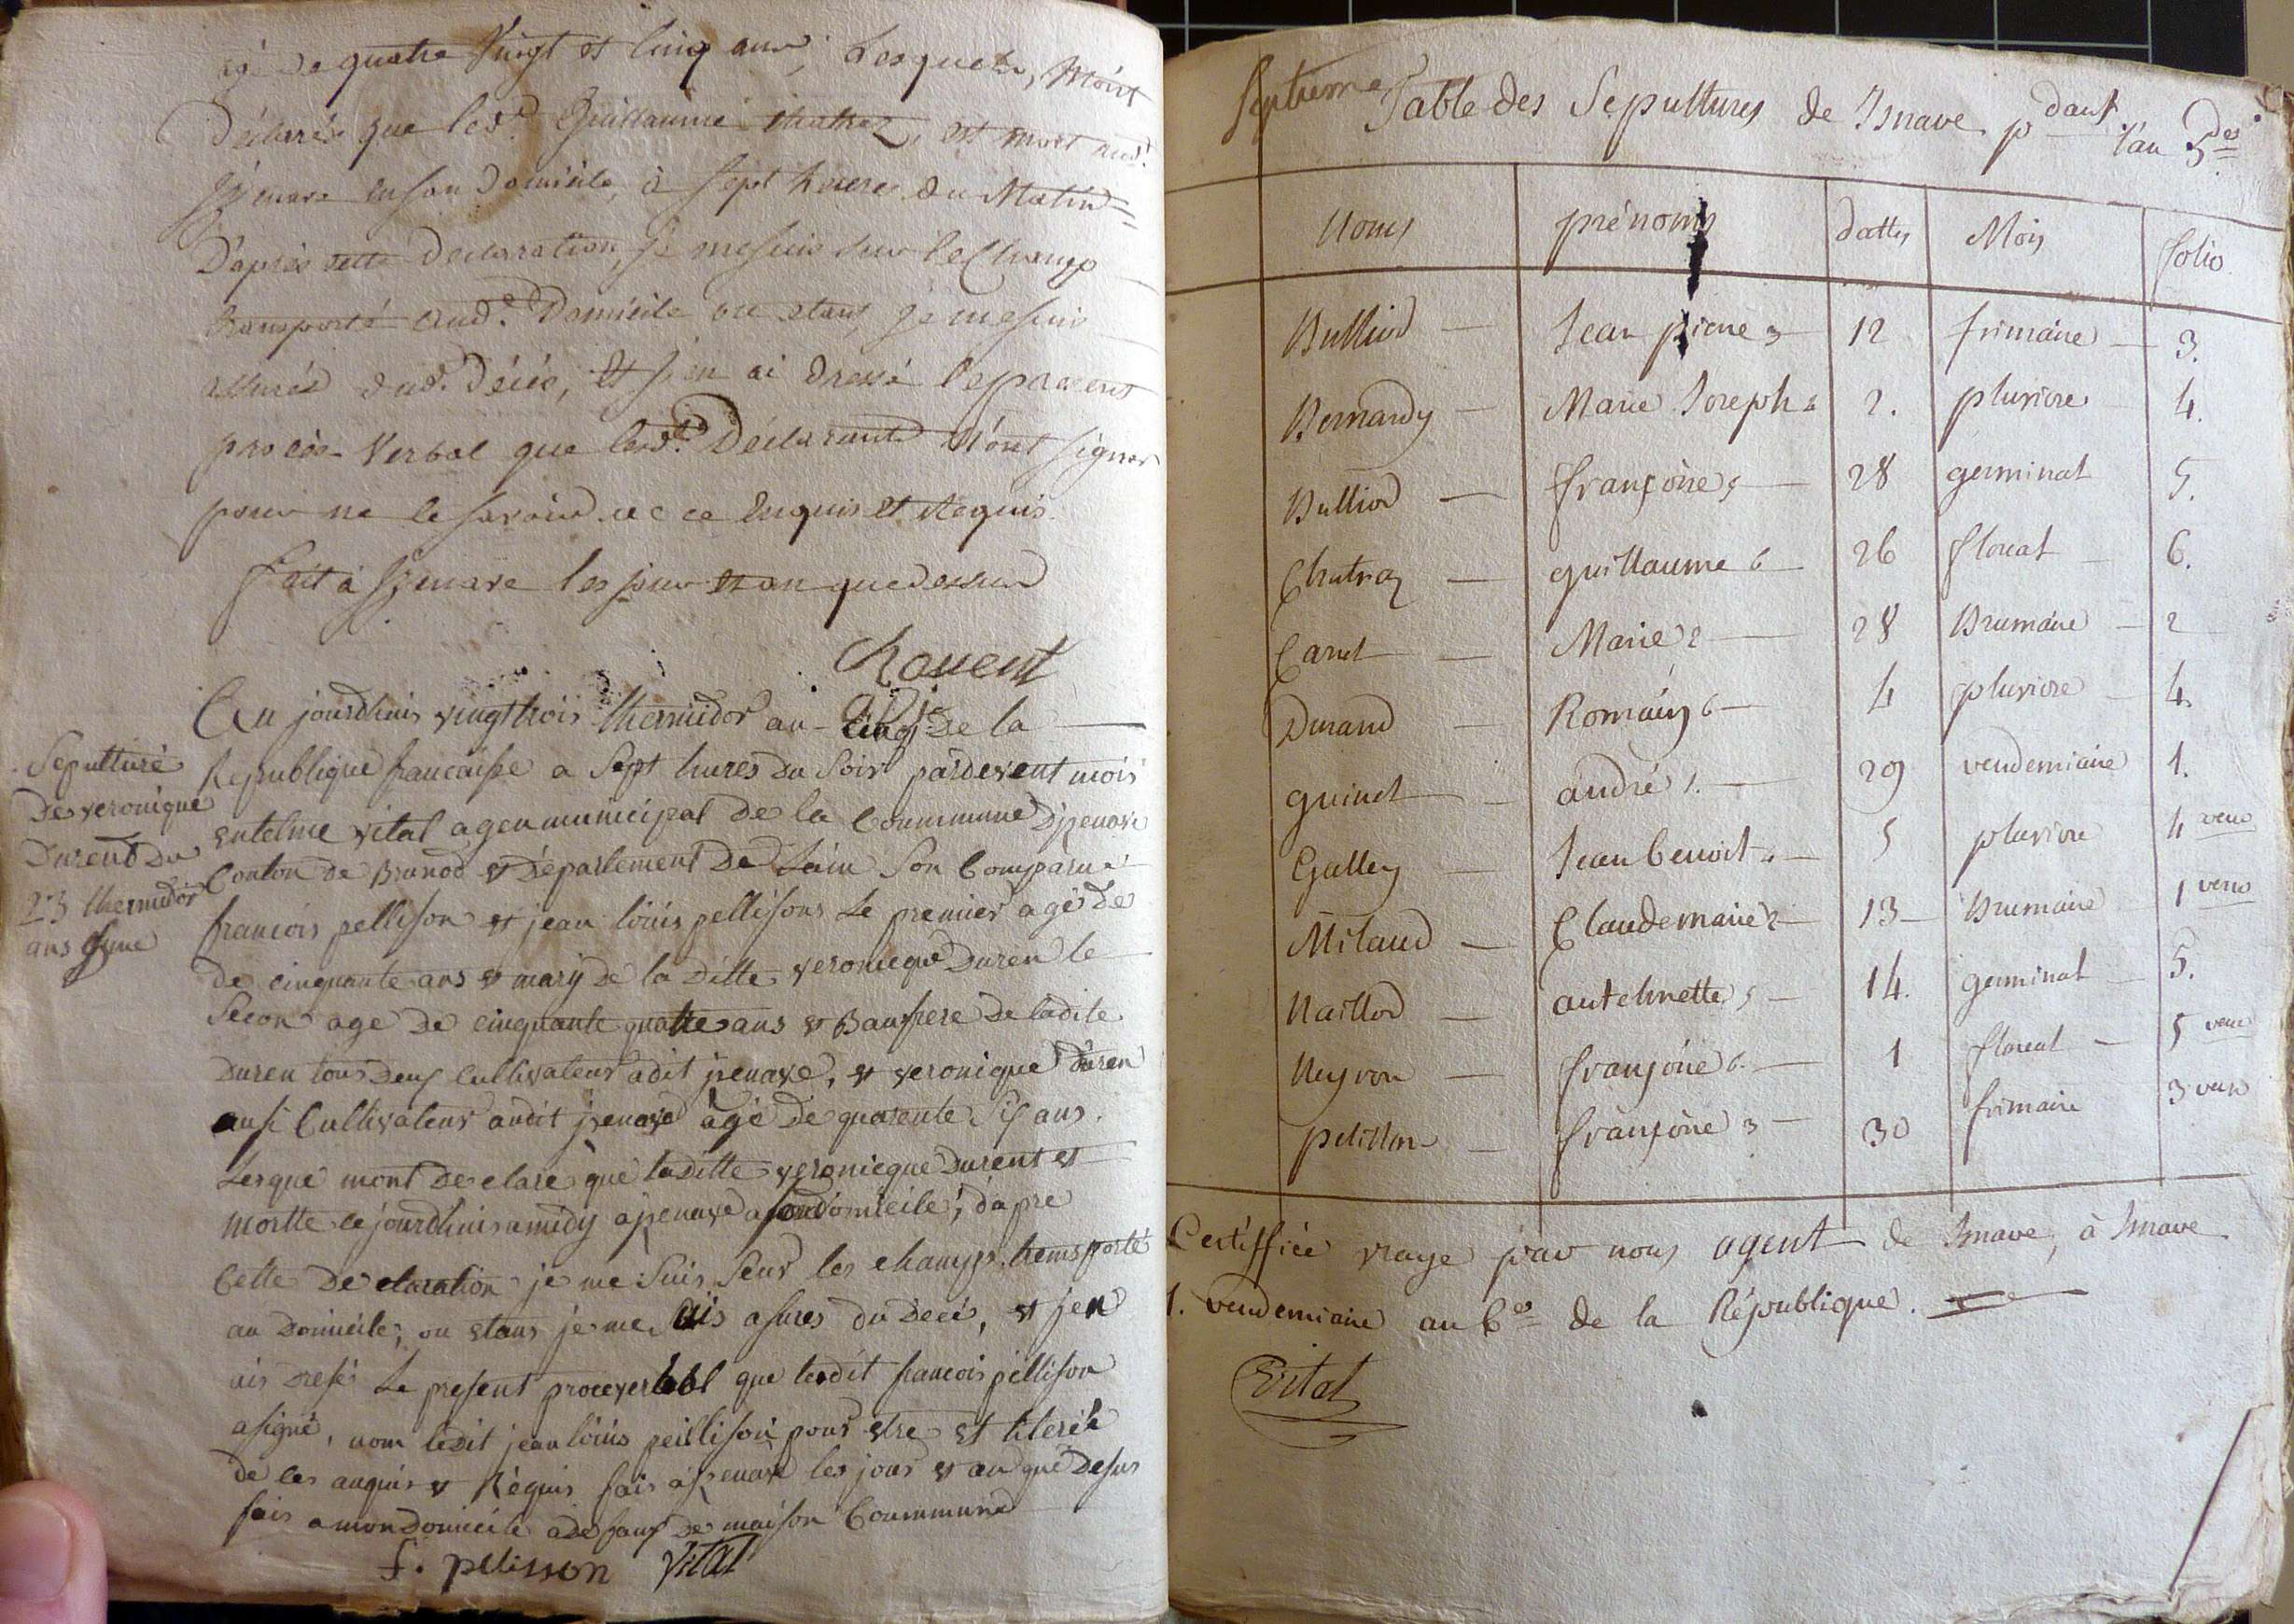 agé de quatre Vingt et Cinq ans, Lesquels, M'ont
Déclarés que led.t Guillaume Chatraz, est mort aud.
Izenave en son Domicile, à Sept heures du Matin =
D'aprés cette Declaration, je me suis sur le Champ
transporté aud.t Domicile ou etant, je me suis
assurés dud.t Décés, et j'en ai dressé le present
procés-Verbal que lesd.ts Déclarants N'ont signer
pour ne le savoir de ce Enquis et Requis.
fait à Izenave les jour et an que dessus
Ravent
Au jourdhuis vingt trois thermidor an cinq de la
Republique francaisse a Sept hures du Soir pardevent mois
entelme vital agen municipal de la Coummune Djzenave
Conton de Brunod et Département De Lain Son Comparus
francois pellison et jean louis pellisons Le premier agé de
de cinquante ans et mary de la Ditte veronicque Duren le
Secon age De cinquante quatte ans et Baufrere De ladite
Duren tous deux Cultivateur adit jzenave, et veronique duren
ausi Cultivateur audit jzenave agé De quarente Six ans.
Lesque mont De clare que laditte veronicque Durent et
mortte ce jourdhuis a midy a jzenave a son domicile; dapre
Cette De claration je me Suis Seur les champs trensporté
au Domicile, ou etans je me suis asures du Decé, et jen
ais dresés Le present proceverbal que ledit francois pellison
a signé, nom ledit jean louis peillison pour etre et litere
de les anquis et Réquis fais a jzenave les jour et an que Desus
fais a mon Domicile a de faux de maison Coummune
f. pelisson Vital
Sepulture
De veronique
Durent du
23 thermidor
ans sinc
Septieme Table des Sepultures de Isnave pdant l'an 5.
Noms prénoms dattes Mois folio
Bulliod — Jean pierre 3 — 12 frimaire — 3.
Bernardy — Marie Joseph 4 2. pluviose 4.
Bulliod — françoise 5 — 28 germinal 5.
Chatraz — guillaume 6 — 26 floreal — 6.
Carret — Marie 2 — 28 Brumaire — 2
Durand — Romain 6 — 4 pluviose — 4.
guinet — andré 1. — 29 vendemiaire 1.
Galley — Jean benoit 4 — 5 pluviose 4 verso
Milaud — Claude marie 2 — 13 — Brumaire 1 verso
Naillod — antelmette 5 — 14. germinal — 5.
Neyron — françoise 6. — 1 floreal — 5 verso
pelisson — françoise 3 — 30 frimaire 3 verso
Certiffiée vraye par nous agent de Isnave, à Isnave
1. vendemiaire an 6 de la République.
Vital